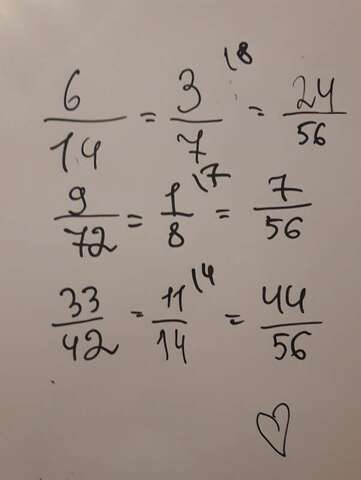 6/14 = 3/7 \8 = 24/56
9/72 = 1/8 \7 = 7/56
33/42 = 11/14 \4 = 44/56